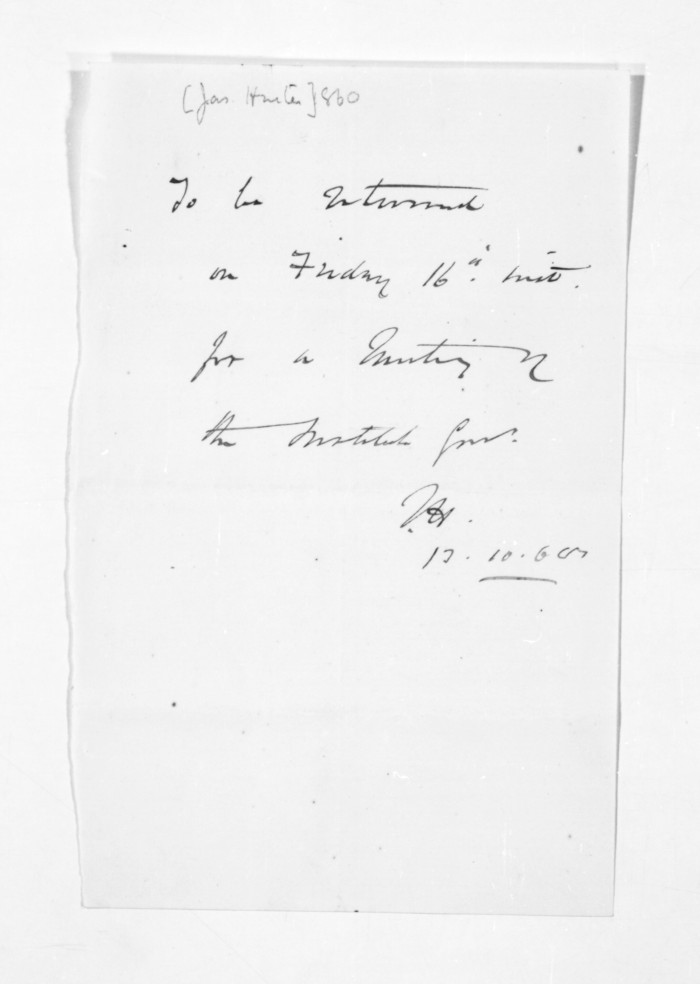 [Jas. Hector] 1860
To be returned
on Friday 16th inst.
for a meeting of
the Institute Govrs.
J.H.
13.10.68